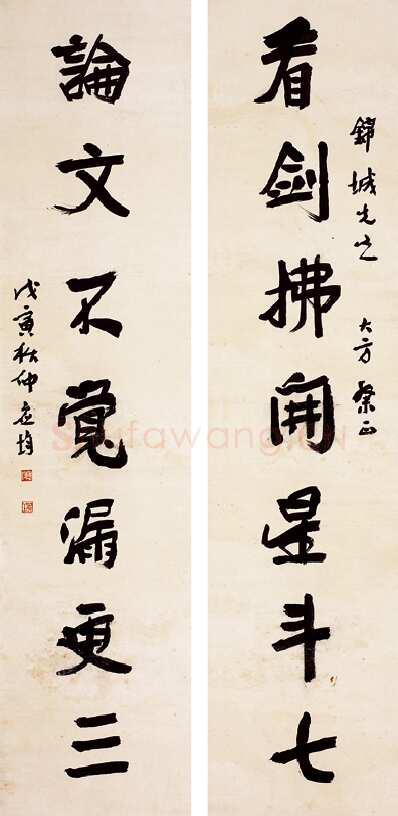 錦城先生 大方
看劍拂開星斗七
論文不覺漏更三
戊寅秋仲
Shufawang.CN